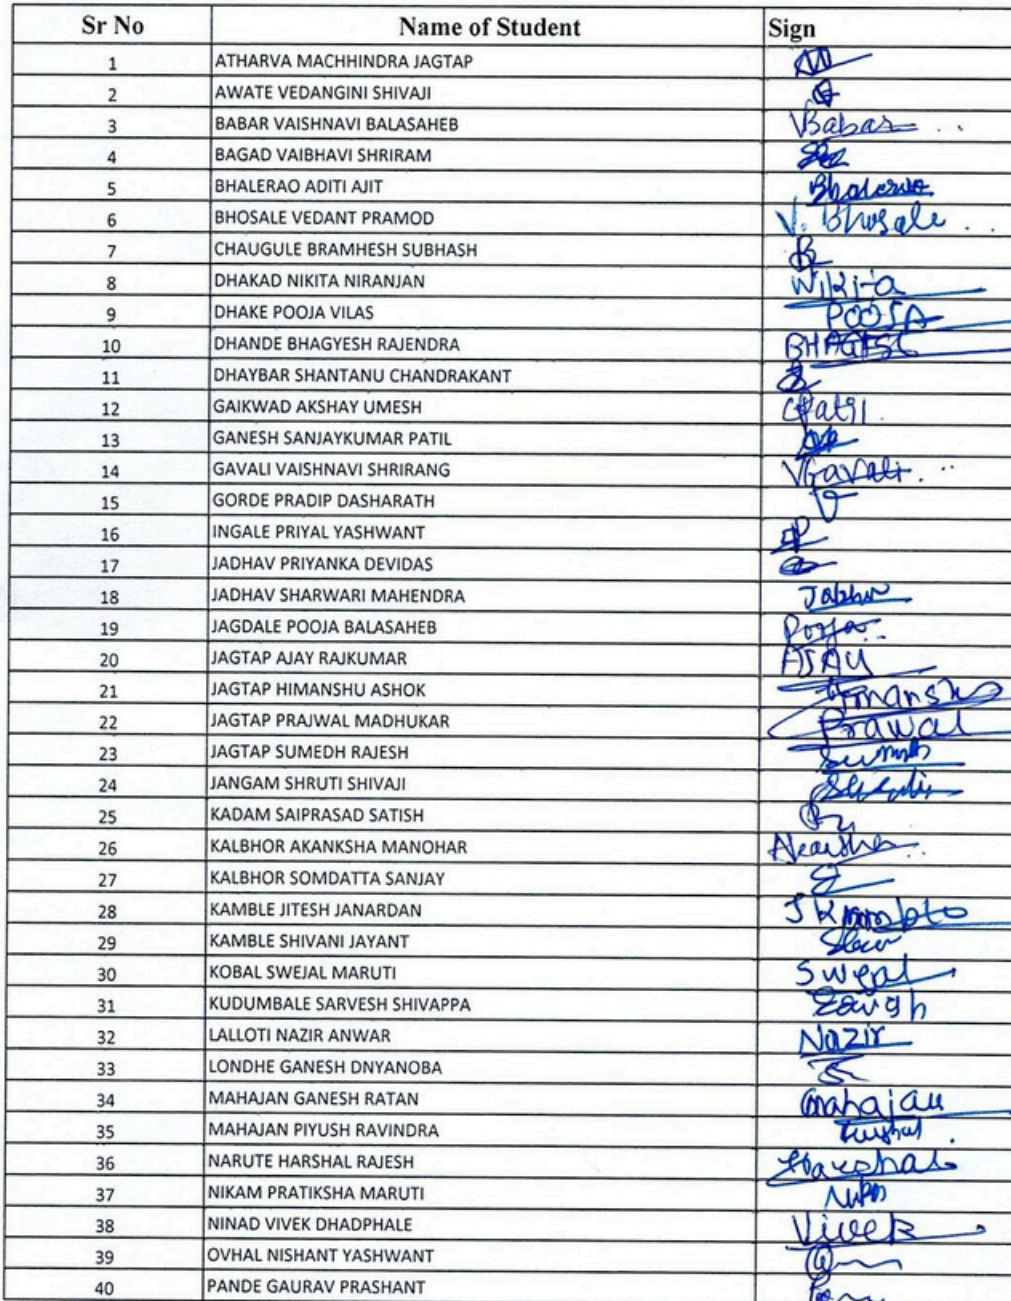 Sr No Name of Student Sign
1 ATHARVA MACHHINDRA JAGTAP
2 AWATE VEDANGINI SHIVAJI
3 BABAR VAISHNAVI BALASAHEB VBabar
4 BAGAD VAIBHAVI SHRIRAM
5 BHALERAO ADITI AJIT Bhalerao
6 BHOSALE VEDANT PRAMOD V. Bhosale
7 CHAUGULE BRAMHESH SUBHASH
8 DHAKAD NIKITA NIRANJAN Nikita
9 DHAKE POOJA VILAS POOJA
10 DHANDE BHAGYESH RAJENDRA
11 DHAYBAR SHANTANU CHANDRAKANT
12 GAIKWAD AKSHAY UMESH
13 GANESH SANJAYKUMAR PATIL
14 GAVALI VAISHNAVI SHRIRANG VGavali
15 GORDE PRADIP DASHARATH
16 INGALE PRIYAL YASHWANT
17 JADHAV PRIYANKA DEVIDAS
18 JADHAV SHARWARI MAHENDRA
19 JAGDALE POOJA BALASAHEB Pooja
20 JAGTAP AJAY RAJKUMAR AJAY
21 JAGTAP HIMANSHU ASHOK
22 JAGTAP PRAJWAL MADHUKAR Prawal
23 JAGTAP SUMEDH RAJESH
24 JANGAM SHRUTI SHIVAJI
25 KADAM SAIPRASAD SATISH
26 KALBHOR AKANKSHA MANOHAR
27 KALBHOR SOMDATTA SANJAY
28 KAMBLE JITESH JANARDAN
29 KAMBLE SHIVANI JAYANT
30 KOBAL SWEJAL MARUTI Swejal
31 KUDUMBALE SARVESH SHIVAPPA
32 LALLOTI NAZIR ANWAR Nazir
33 LONDHE GANESH DNYANOBA
34 MAHAJAN GANESH RATAN Mahajan
35 MAHAJAN PIYUSH RAVINDRA
36 NARUTE HARSHAL RAJESH Harshal
37 NIKAM PRATIKSHA MARUTI
38 NINAD VIVEK DHADPHALE Vivek
39 OVHAL NISHANT YASHWANT
40 PANDE GAURAV PRASHANT